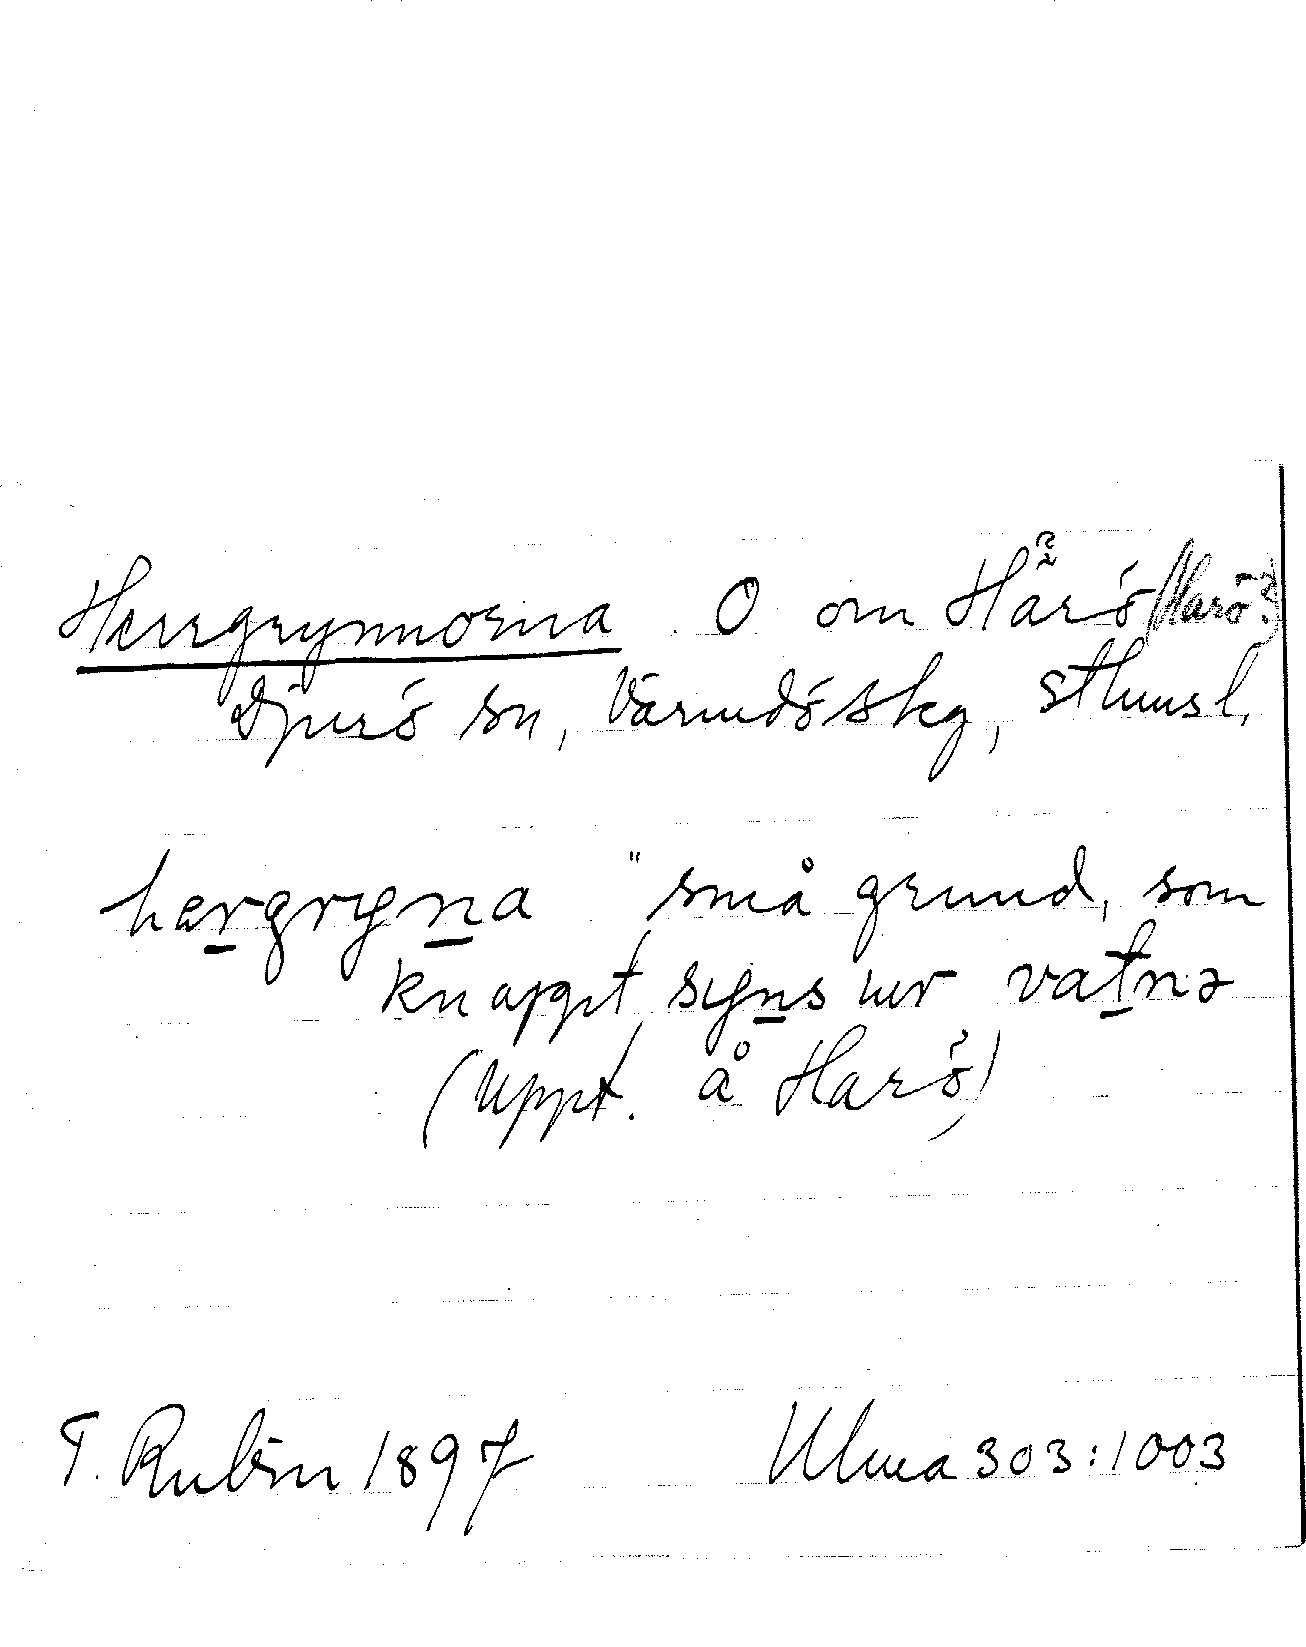 Herrgrynnorna. O om Hårö (Harö?)
Djurö sn, Värmdö skg, sthmsl.
hærgryna "små grund, som
knappt syns ur vatnə
(Uppt. å Harö)
T. Rubin 1897 Ulma 303:1003